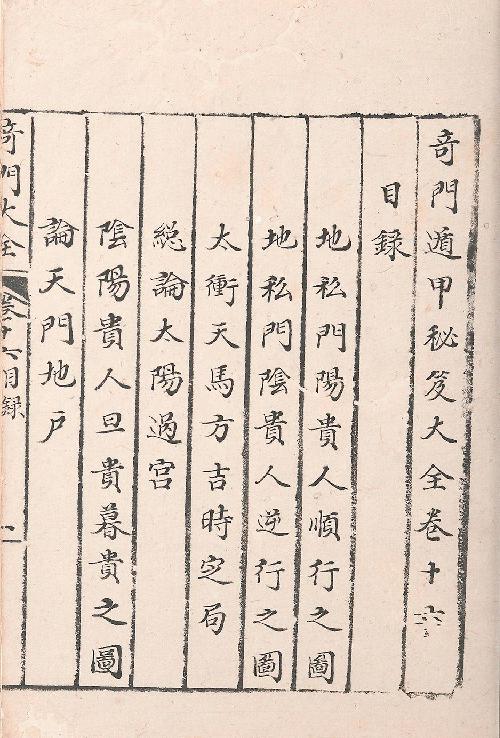 奇門遁甲秘笈大全卷十六
目錄
地私門陽貴人順行之圖
地私門陰貴人逆行之圖
太衝天馬方吉時定局
総論太陽過宮
陰陽貴人旦貴暮貴之圖
論天門地戶
奇門大全 卷十六目錄 一